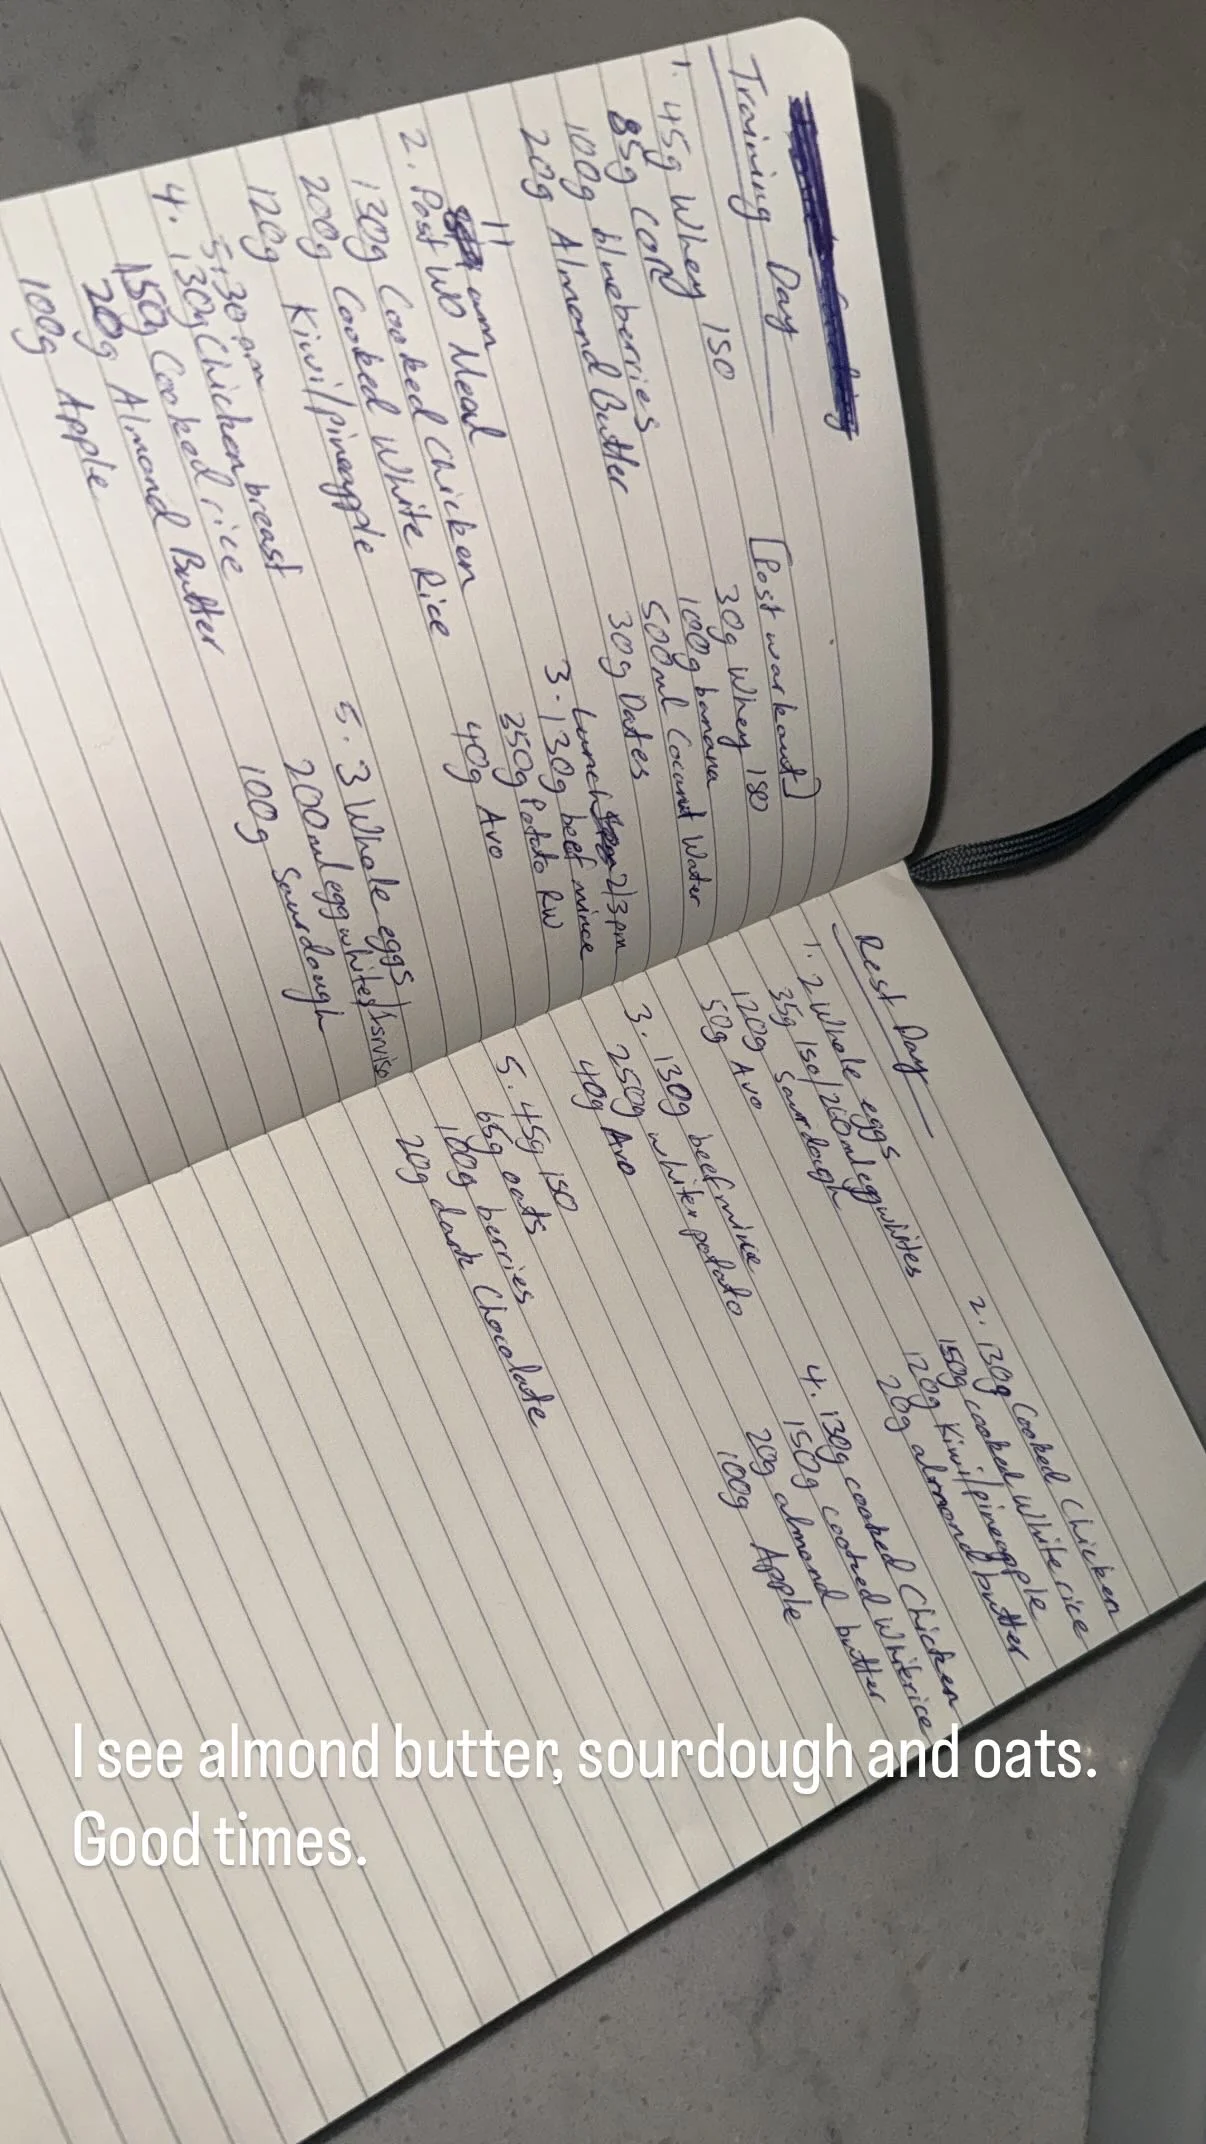 Training Day
1. 45g Whey ISO
85g CoR
100g blueberries
20g Almond Butter
[Post workout]
30g Whey ISO
100g banana
500ml Coconut Water
30g Dates
11 am
2. Post WO Meal
130g Cooked Chicken
200g Cooked White Rice
120g Kiwi/pineapple
Lunch 2/3pm
3. 130g beef mince
350g Potato RW
40g Avo
5:30pm
4. 130g Chicken breast
150g Cooked rice
20g Almond Butter
100g Apple
5. 3 Whole eggs
200ml egg whites/
100g Sourdough
Rest Day
1. 2 Whole eggs
35g Iso/260ml egg whites
120g Sourdough
50g Avo
2. 130g Cooked Chicken
150g cooked White rice
120g Kiwi/pineapple
20g almond butter
3. 130g beef mince
250g white potato
40g Avo
4. 130g cooked Chicken
150g cooked White rice
20g almond butter
100g Apple
5. 45g ISO
65g oats
100g berries
20g dark Chocolate
I see almond butter, sourdough and oats.
Good times.